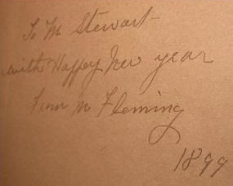 To M Stewart-
with Happy New year
from M Fleming
1899